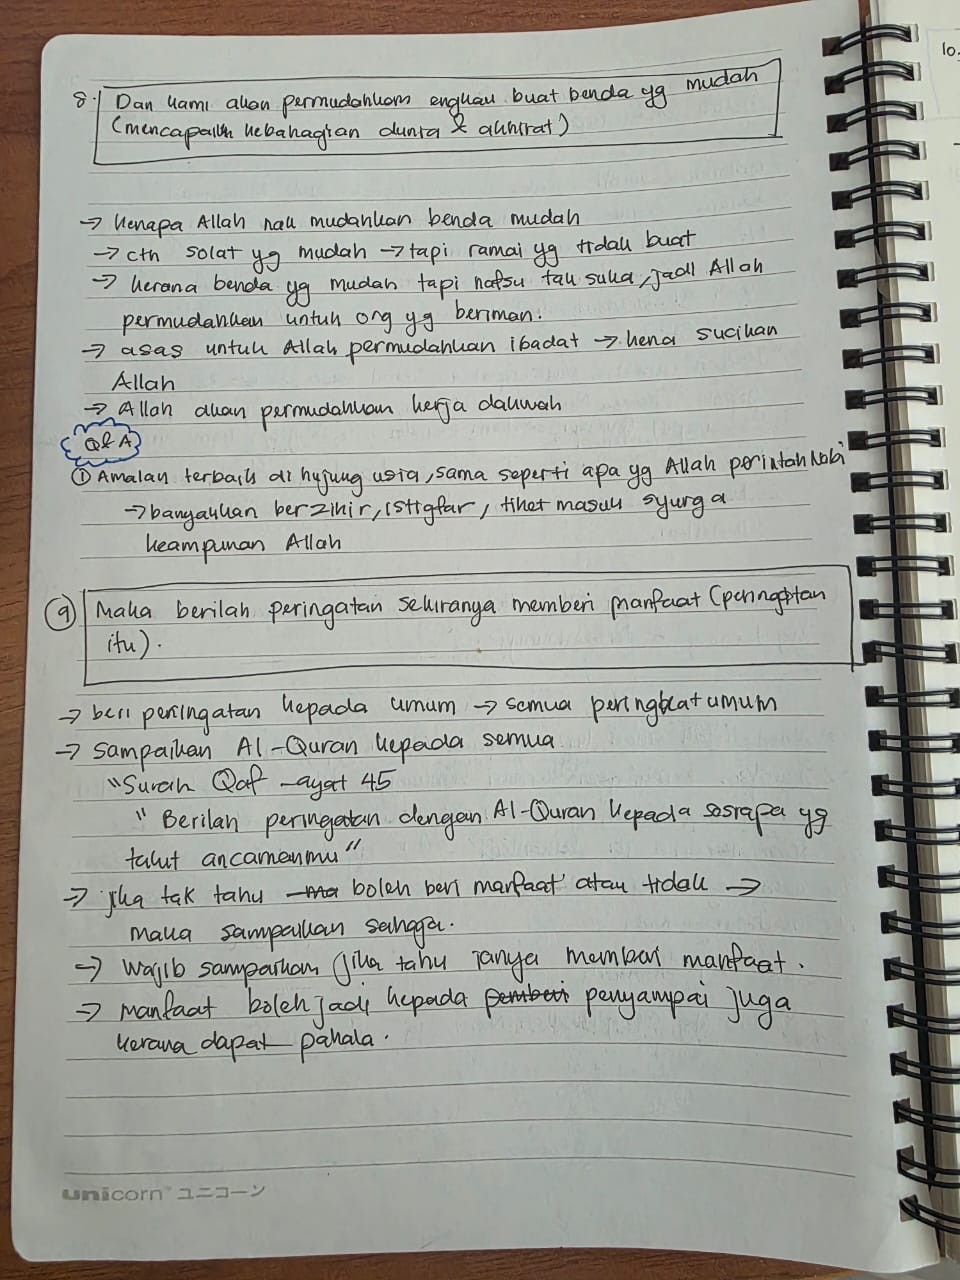 8. Dan kami akan permudahkan engkau buat benda yg mudah
(mencapaikn kebahagian dunia & akhirat)
→ kenapa Allah nak mudahkan benda mudah
→ cth solat yg mudah → tapi ramai yg tidak buat
→ kerana benda yg mudah tapi nafsu tak suka, jadi Allah
permudahkan untuk org yg beriman.
→ asas untuk Allah permudahkan ibadat → kena sucikan
Allah
→ Allah akan permudahkan kerja dakwah
Q & A
① Amalan terbaik di hujung usia, sama seperti apa yg Allah perintah Nabi
→ banyakkan berzikir, istigfar, tiket masuk syurga
keampunan Allah
⑨ Maka berilah peringatan sekiranya memberi manfaat (peringatan
itu).
→ beri peringatan kepada umum → semua peringkat umum
→ sampaikan Al-Quran kepada semua
"Surah Qaf - ayat 45
" Berilah peringatan dengan Al-Quran kepada sosiapa yg
takut ancamanmu"
→ jika tak tahu ma boleh beri manfaat atau tidak →
maka sampaikan sahaja.
→ wajib sampaikan jika tahu ianya memberi manfaat.
→ manfaat boleh jadi kepada pemberi penyampai juga
kerana dapat pahala.
unicorn ユニコーン
10.